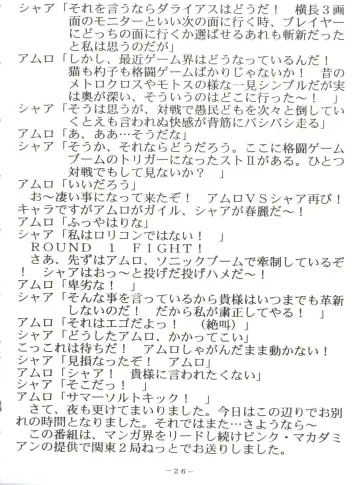 シャア「それを言うならダライアスはどうだ！　横長３画
面のモニターといい次の面に行く時、プレイヤー
にどっちの面に行くか選ばせるあれも斬新だった
と私は思うのだが」
アムロ「しかし、最近ゲーム界はどうなっているんだ！
猫も杓子も格闘ゲームばかりじゃないか！　昔の
メトロクロスやモトスの様な一見シンプルだが実
は奥が深い、そういうのはどこに行った～！　」
シャア「そうは思うが、対戦で愚民どもを次々と倒してい
くとえも言われぬ快感が背筋にバシバシ走る」
アムロ「あ、ああ…そうだな」
シャア「そうか、それならどうだろう。ここに格闘ゲーム
ブームのトリガーになったストⅡがある。ひとつ
対戦でもして見ないか？　」
アムロ「いいだろう」
お～凄い事になって来たぞ！　アムロＶＳシャア再び！
キャラですがアムロがガイル、シャアが春麗だ～！
アムロ「ふっやはりな」
シャア「私はロリコンではない！　」
ＲＯＵＮＤ　１　ＦＩＧＨＴ！
さあ、先ずはアムロ、ソニックブームで牽制しているぞ
！　シャアはおっ～と投げだ投げハメだ～！
アムロ「卑劣な！　」
シャア「そんな事を言っているから貴様はいつまでも革新
しないのだ！　だから私が粛正してやる！　」
アムロ「それはエゴだよっ！　（絶叫）」
シャア「どうしたアムロ、かかってこい」
こっこれは待ちだ！　アムロしゃがんだまま動かない！
シャア「見損なったぞ！　アムロ」
アムロ「シャア！　貴様に言われたくない」
シャア「そこだっ！　」
アムロ「サマーソルトキック！　」
さて、夜も更けてまいりました。今日はこの辺りでお別
れの時間となりました。それではまた…さようなら～
この番組は、マンガ界をリードし続けピンク・マカダミ
アンの提供で関東２局ねっとでお送りしました。
－２６－